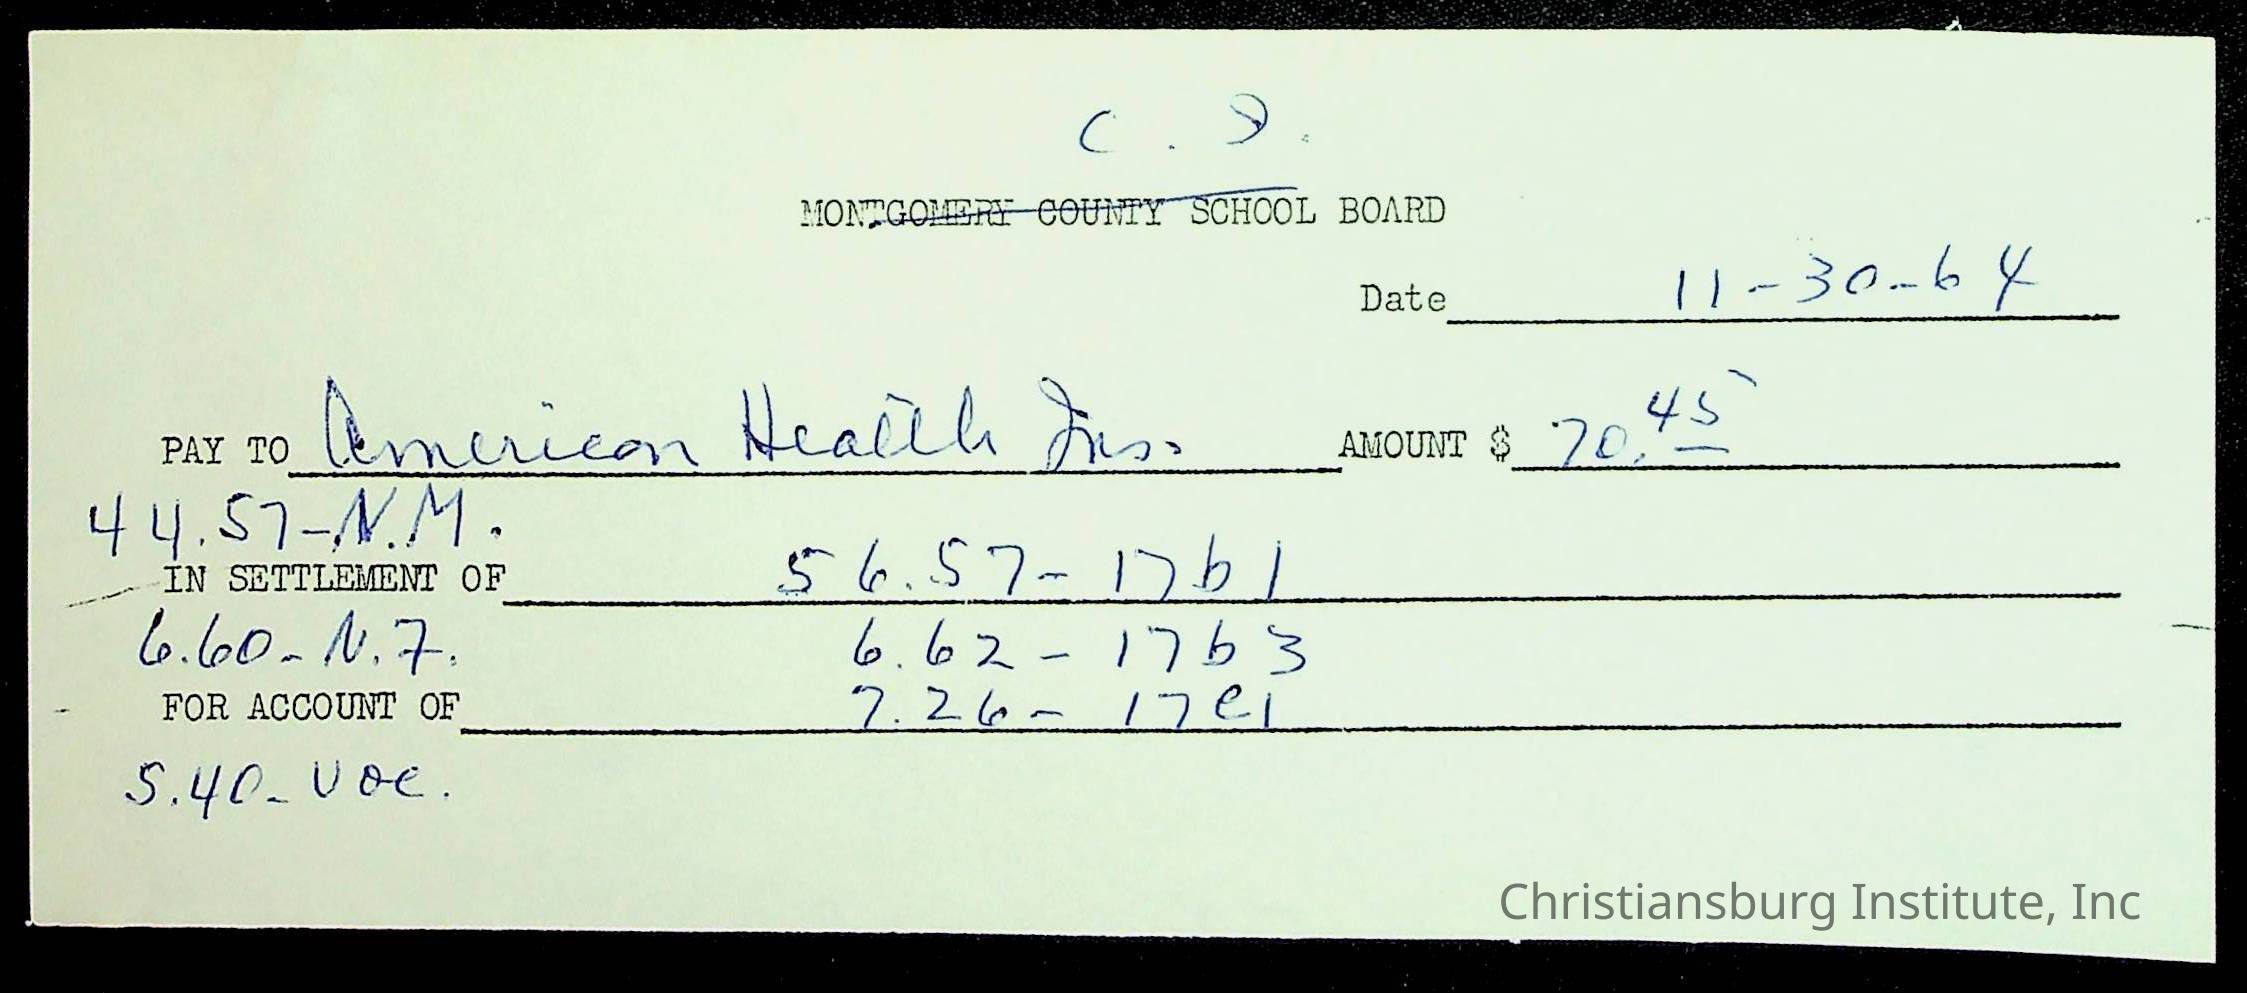 C. I.
MONTGOMERY COUNTY SCHOOL BOARD
Date 11-30-64
PAY TO American Health Ins. AMOUNT $ 70.45
44.57-N.M.
IN SETTLEMENT OF 56.57-17b1
6.60-N.F. 6.62-17b3
FOR ACCOUNT OF 7.26-17e1
5.40-Voc.
Christiansburg Institute, Inc